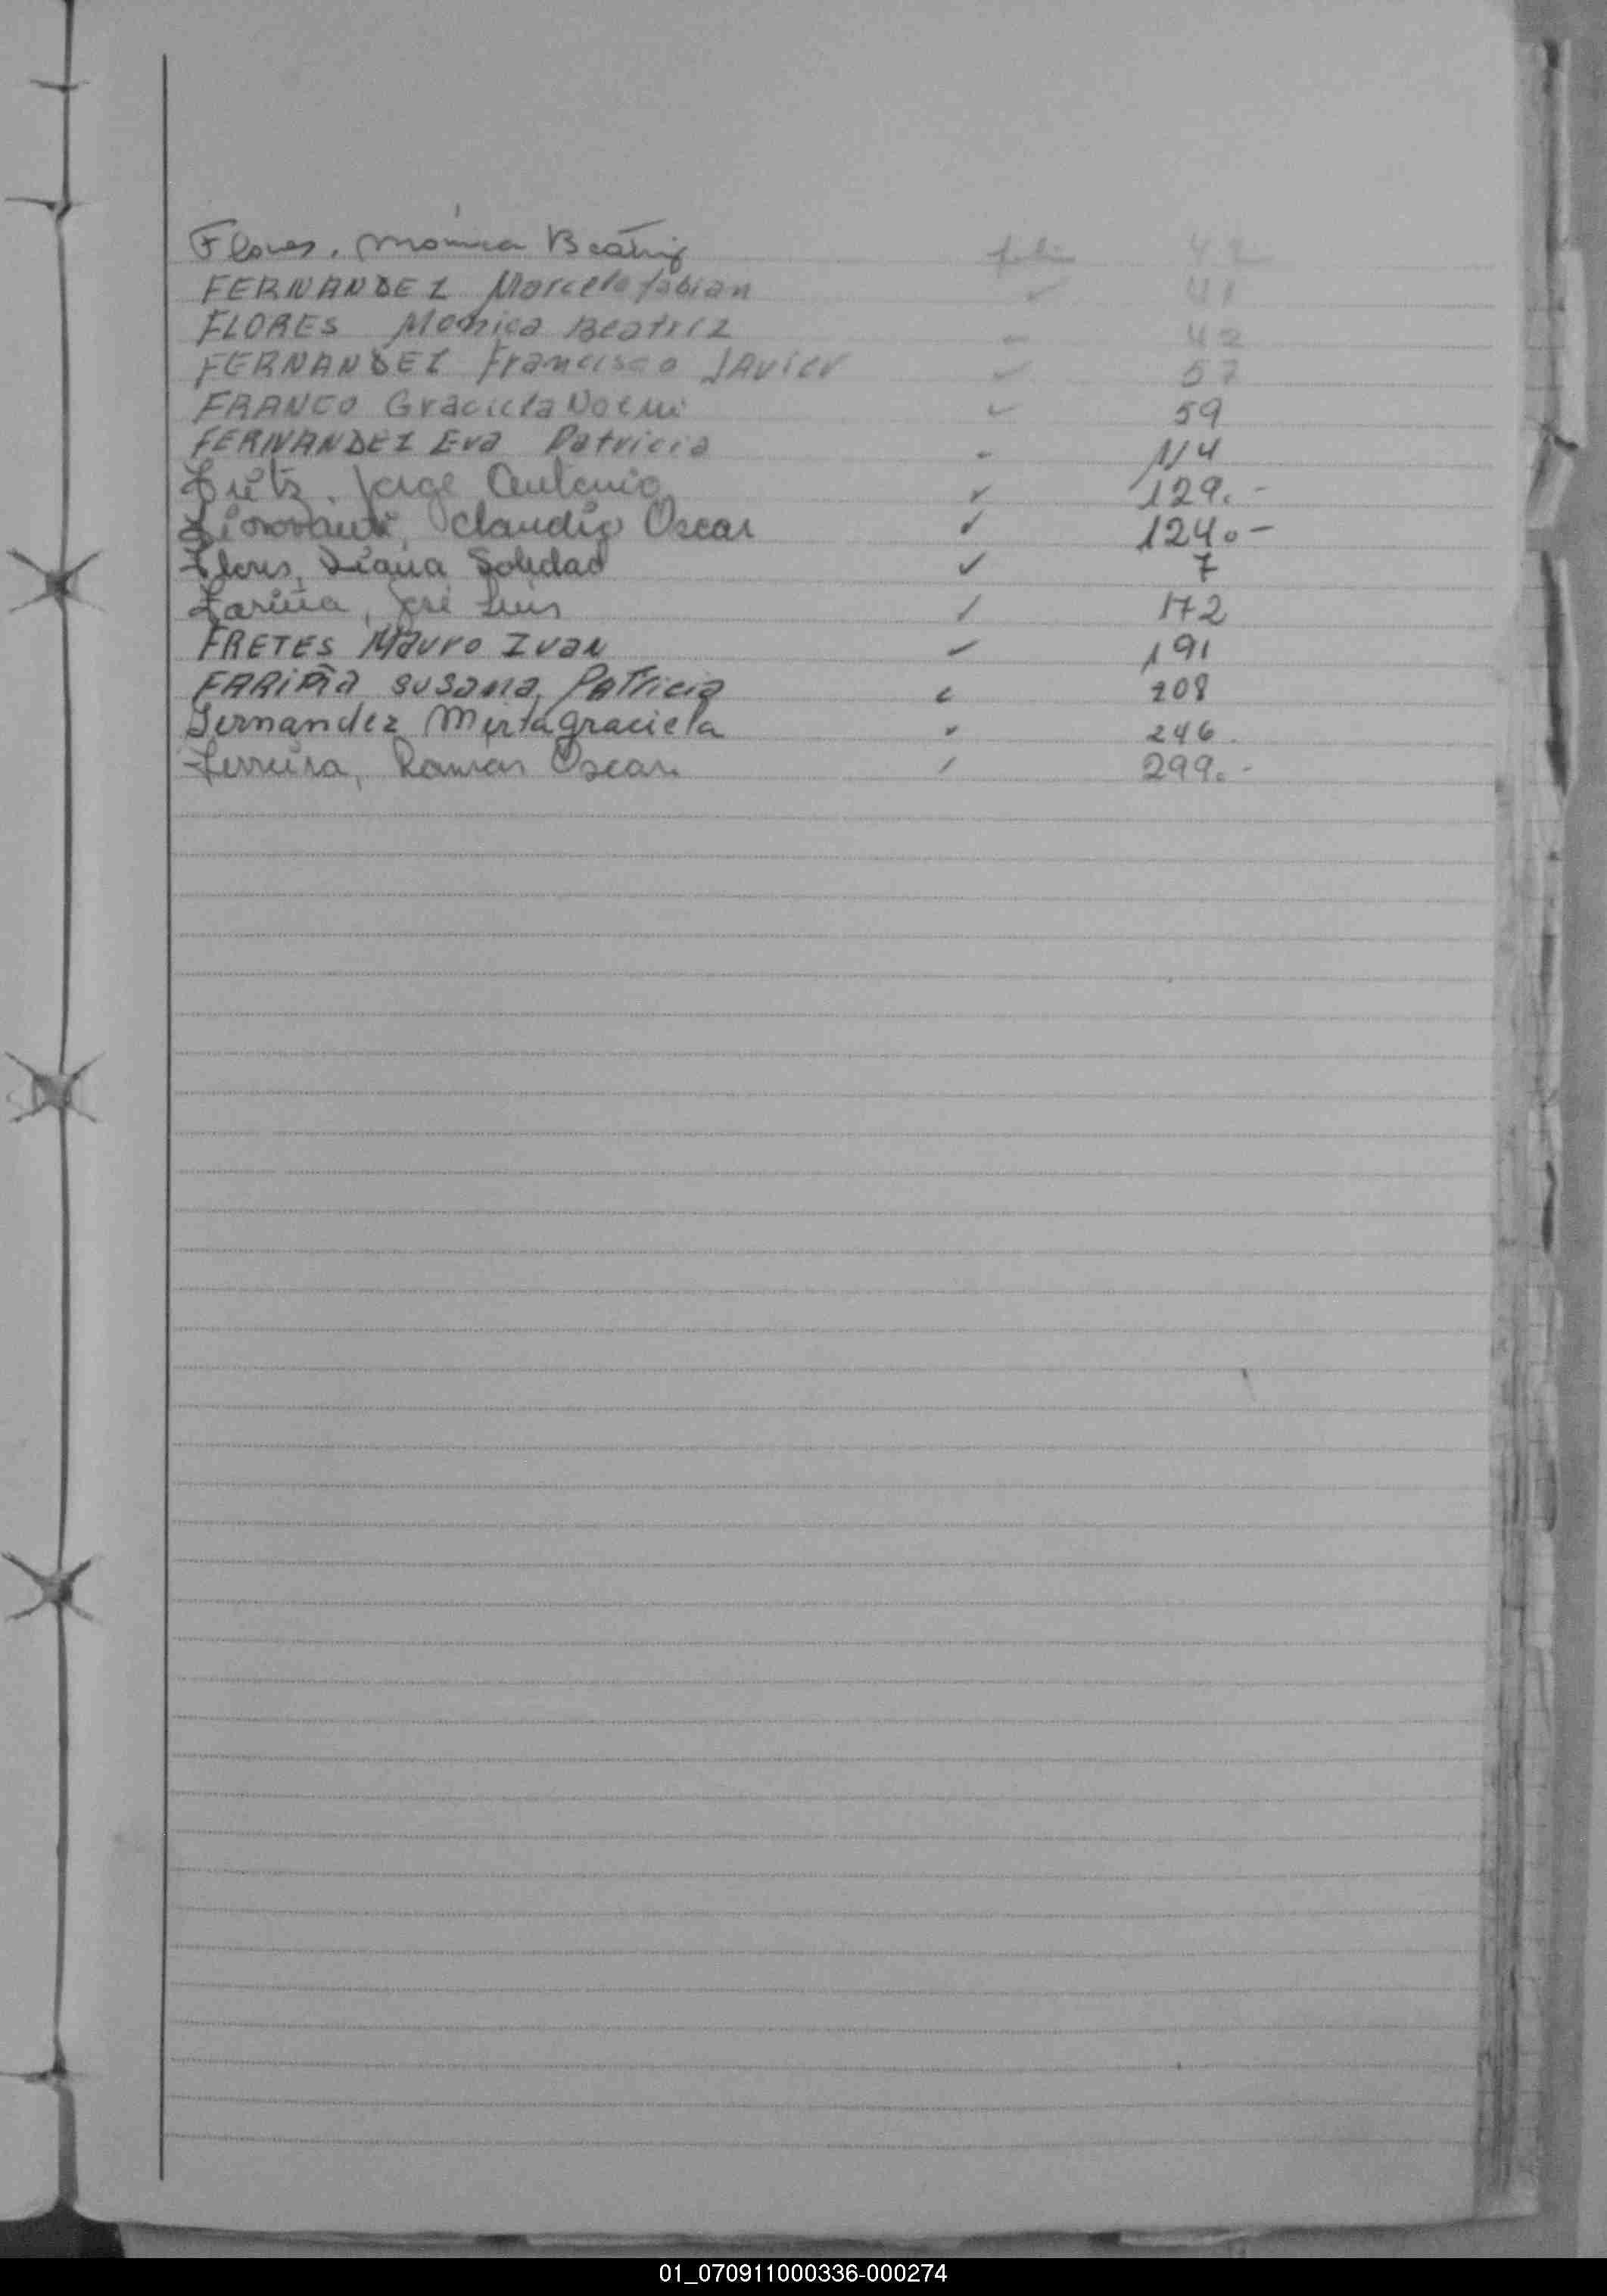 Flores, Mónica Beatriz folio 42
FERNANDEZ Marcelo fabian ✓ 41
FLORES Monica Beatriz - 42
FERNANDEZ Francisco JAvier ✓ 57
FRANCO Graciela Noemi ✓ 59
FERNANDEZ Eva Patricia - 114
Jorge Antonio ✓ 129.-
Claudio Oscar ✓ 124.-
Flores, Diana Soledad ✓ 7
Fariña, José Luis / 172
FRETES Mauro Ivan ✓ 191
FARIÑA susana Patricia ✓ 208
Fernandez Mirta graciela ✓ 246.
Ferreira, Ramon Oscar / 299.-
01_070911000336-000274